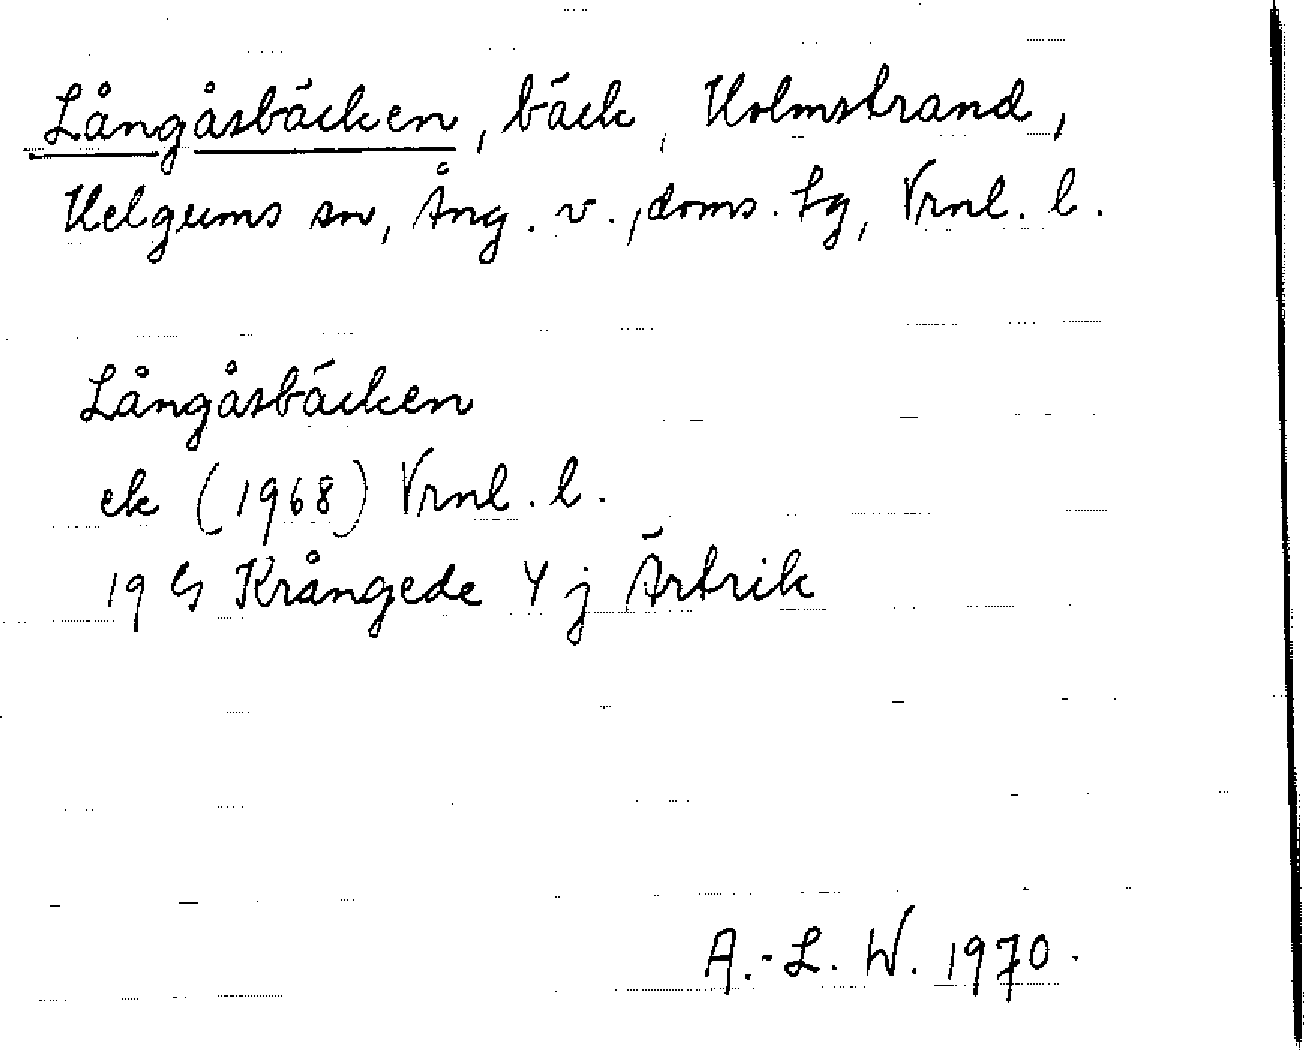 Långåsbäcken, bäck, Holmstrand,
Helgums sn, Ång. v., doms. lg, Vrnl. l.
Långåsbäcken
ek (1968) Vrnl. l.
19 G Krångede 4 j Ärtrik
A.-L. W. 1970.